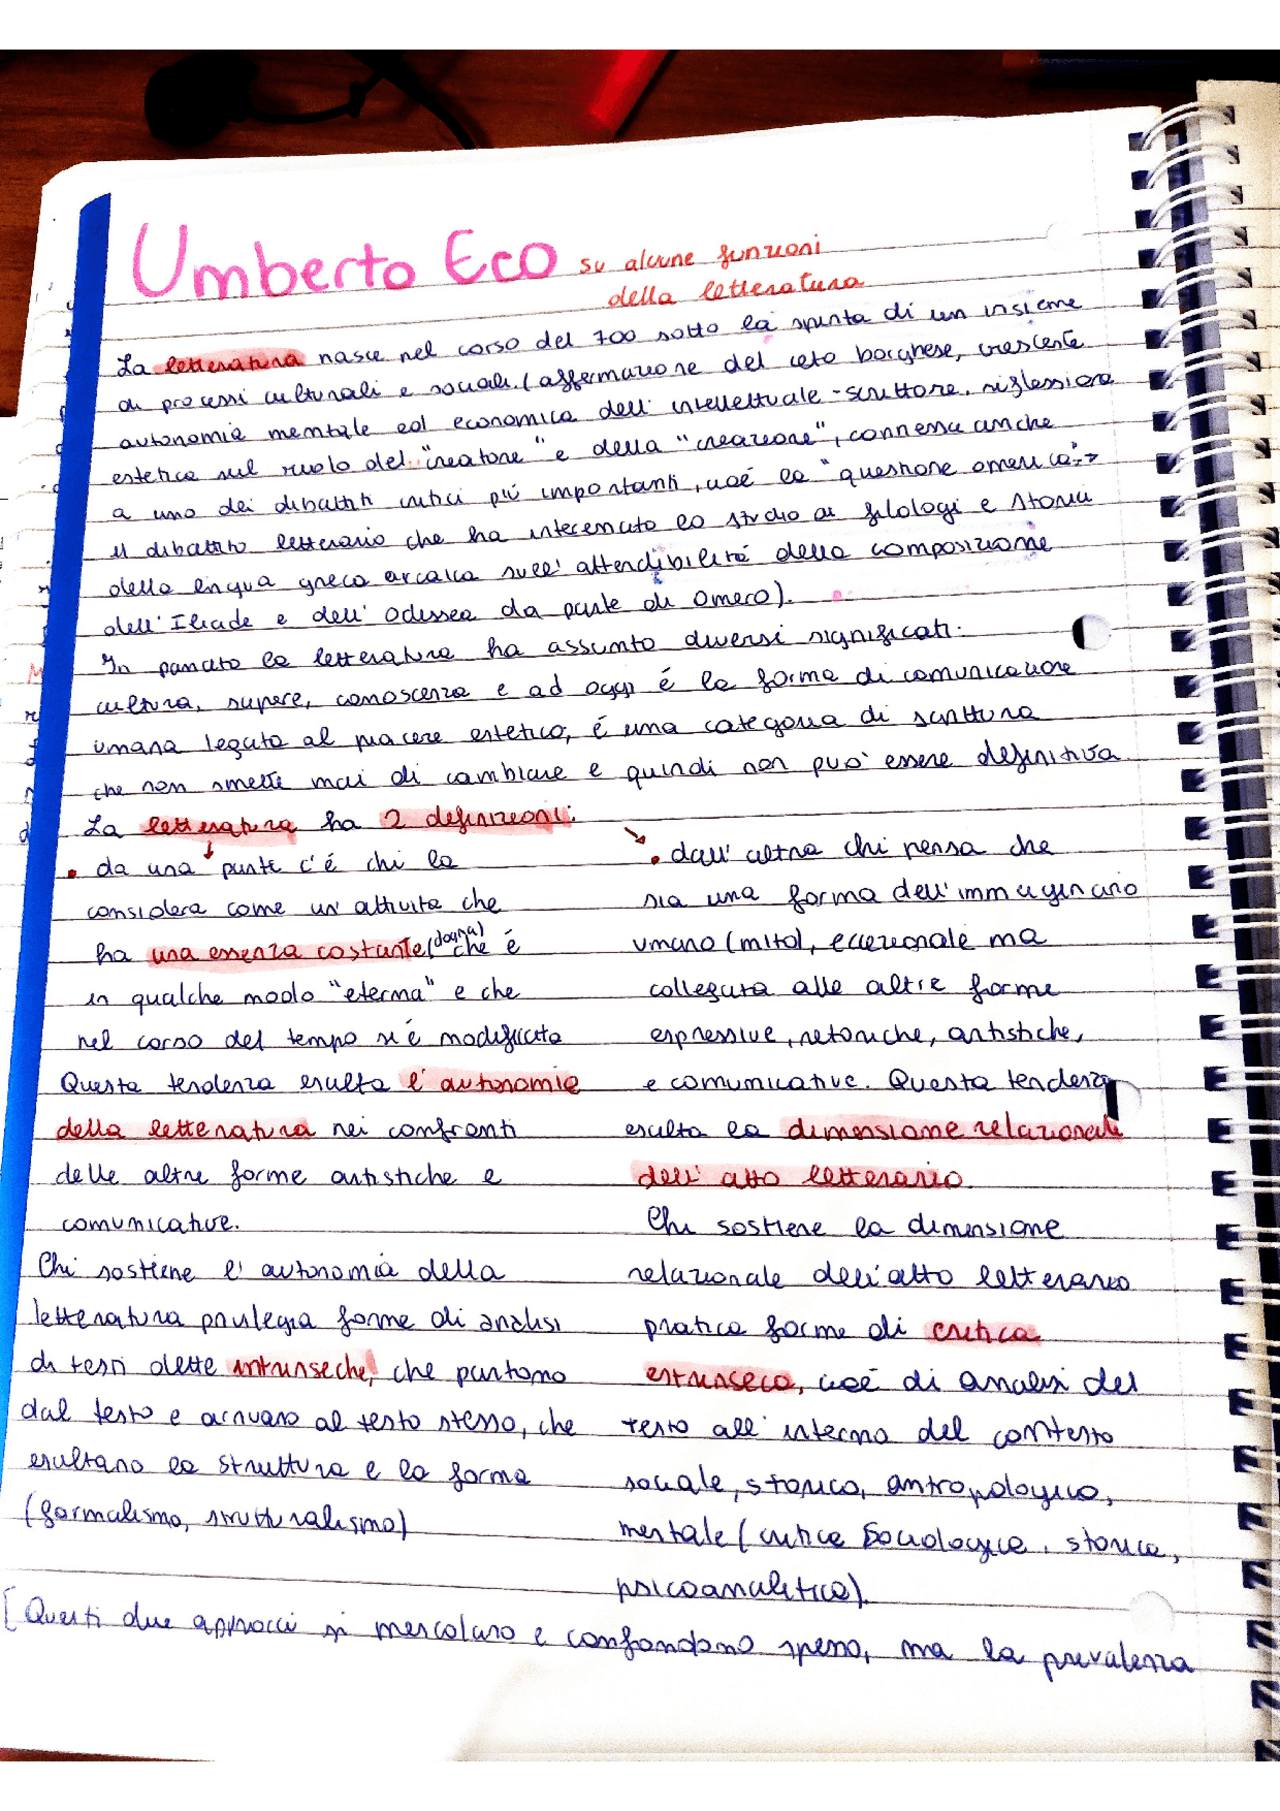 Umberto Eco su alcune funzioni
della letteratura
La letteratura nasce nel corso del 700 sotto la spinta di un insieme
di processi culturali e sociali. (affermazione del ceto borghese, crescente
autonomia mentale ed economica dell'intellettuale-scrittore, riflessione
estetica sul ruolo del "creatore" e della "creazione", connessa anche
a uno dei dibattiti critici più importanti, cioé la "questione omerica":→
il dibattito letterario che ha interessato lo studio di filologi e storici
della lingua greca arcaica sull'attendibilitá della composizione
dell'Iliade e dell'Odissea da parte di Omero).
In passato la letteratura ha assunto diversi significati:
cultura, sapere, conoscenza e ad oggi é la forma di comunicazione
umana legata al piacere estetico, é una categoria di scrittura
che non smette mai di cambiare e quindi non puo' essere definitiva
La letteratura ha 2 definizioni:
• da una parte c'é chi la
considera come un'attivita che
ha una essenza costante (dogma) che é
in qualche modo "eterna" e che
nel corso del tempo si é modificata
Questa tendenza esulta l'autonomia
della letteratura nei confronti
delle altre forme artistiche e
comunicative.
Chi sostiene l'autonomia della
letteratura privilegia forme di analisi
di testi dette intrinseche, che partono
dal testo e arrivano al testo stesso, che
esultano la struttura e la forma
(formalismo, strutturalismo)
• dall'altra chi pensa che
sia una forma dell'immaginario
umano (mito), eccezionale ma
collegata alle altre forme
espressive, retoriche, artistiche,
e comunicative. Questa tendenza
esulta la dimensione relazionale
dell'atto letterario.
Chi sostiene la dimensione
relazionale dell'atto letterario
pratica forme di critica
estrinseca, cioé di analisi del
testo all'interno del contesto
sociale, storico, antropologico,
mentale (critica sociologica, storica,
psicoanalitica).
[Questi due approcci si mescolano e confondono spesso, ma la prevalenza